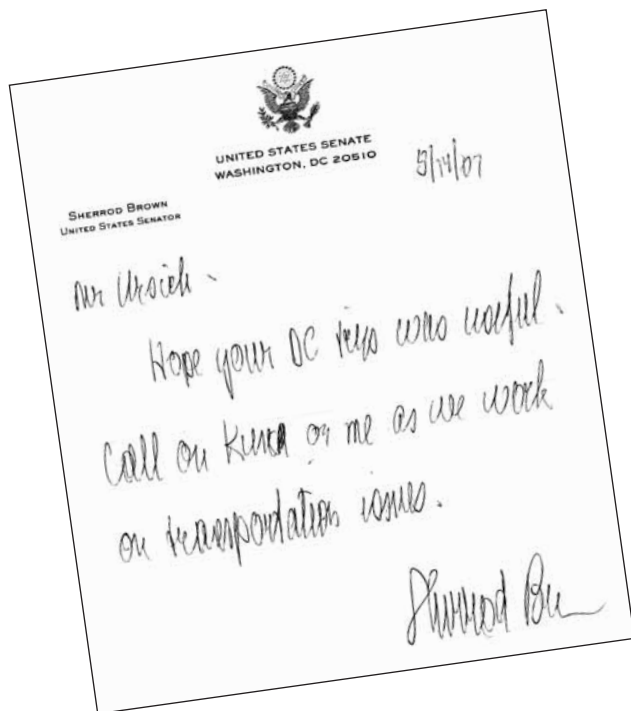 UNITED STATES SENATE
WASHINGTON, DC 20510
5/14/07
SHERROD BROWN
UNITED STATES SENATOR
Mr Ursich -
Hope your DC trip was useful.
Call on or me as we work
on transportation issues.
Sherrod Brown